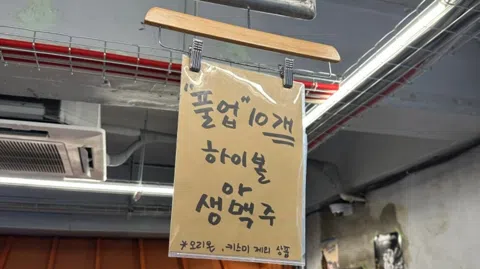 "풀업" 10개
하이볼
or
생맥주
* 오리온, 키스미 제외 상품